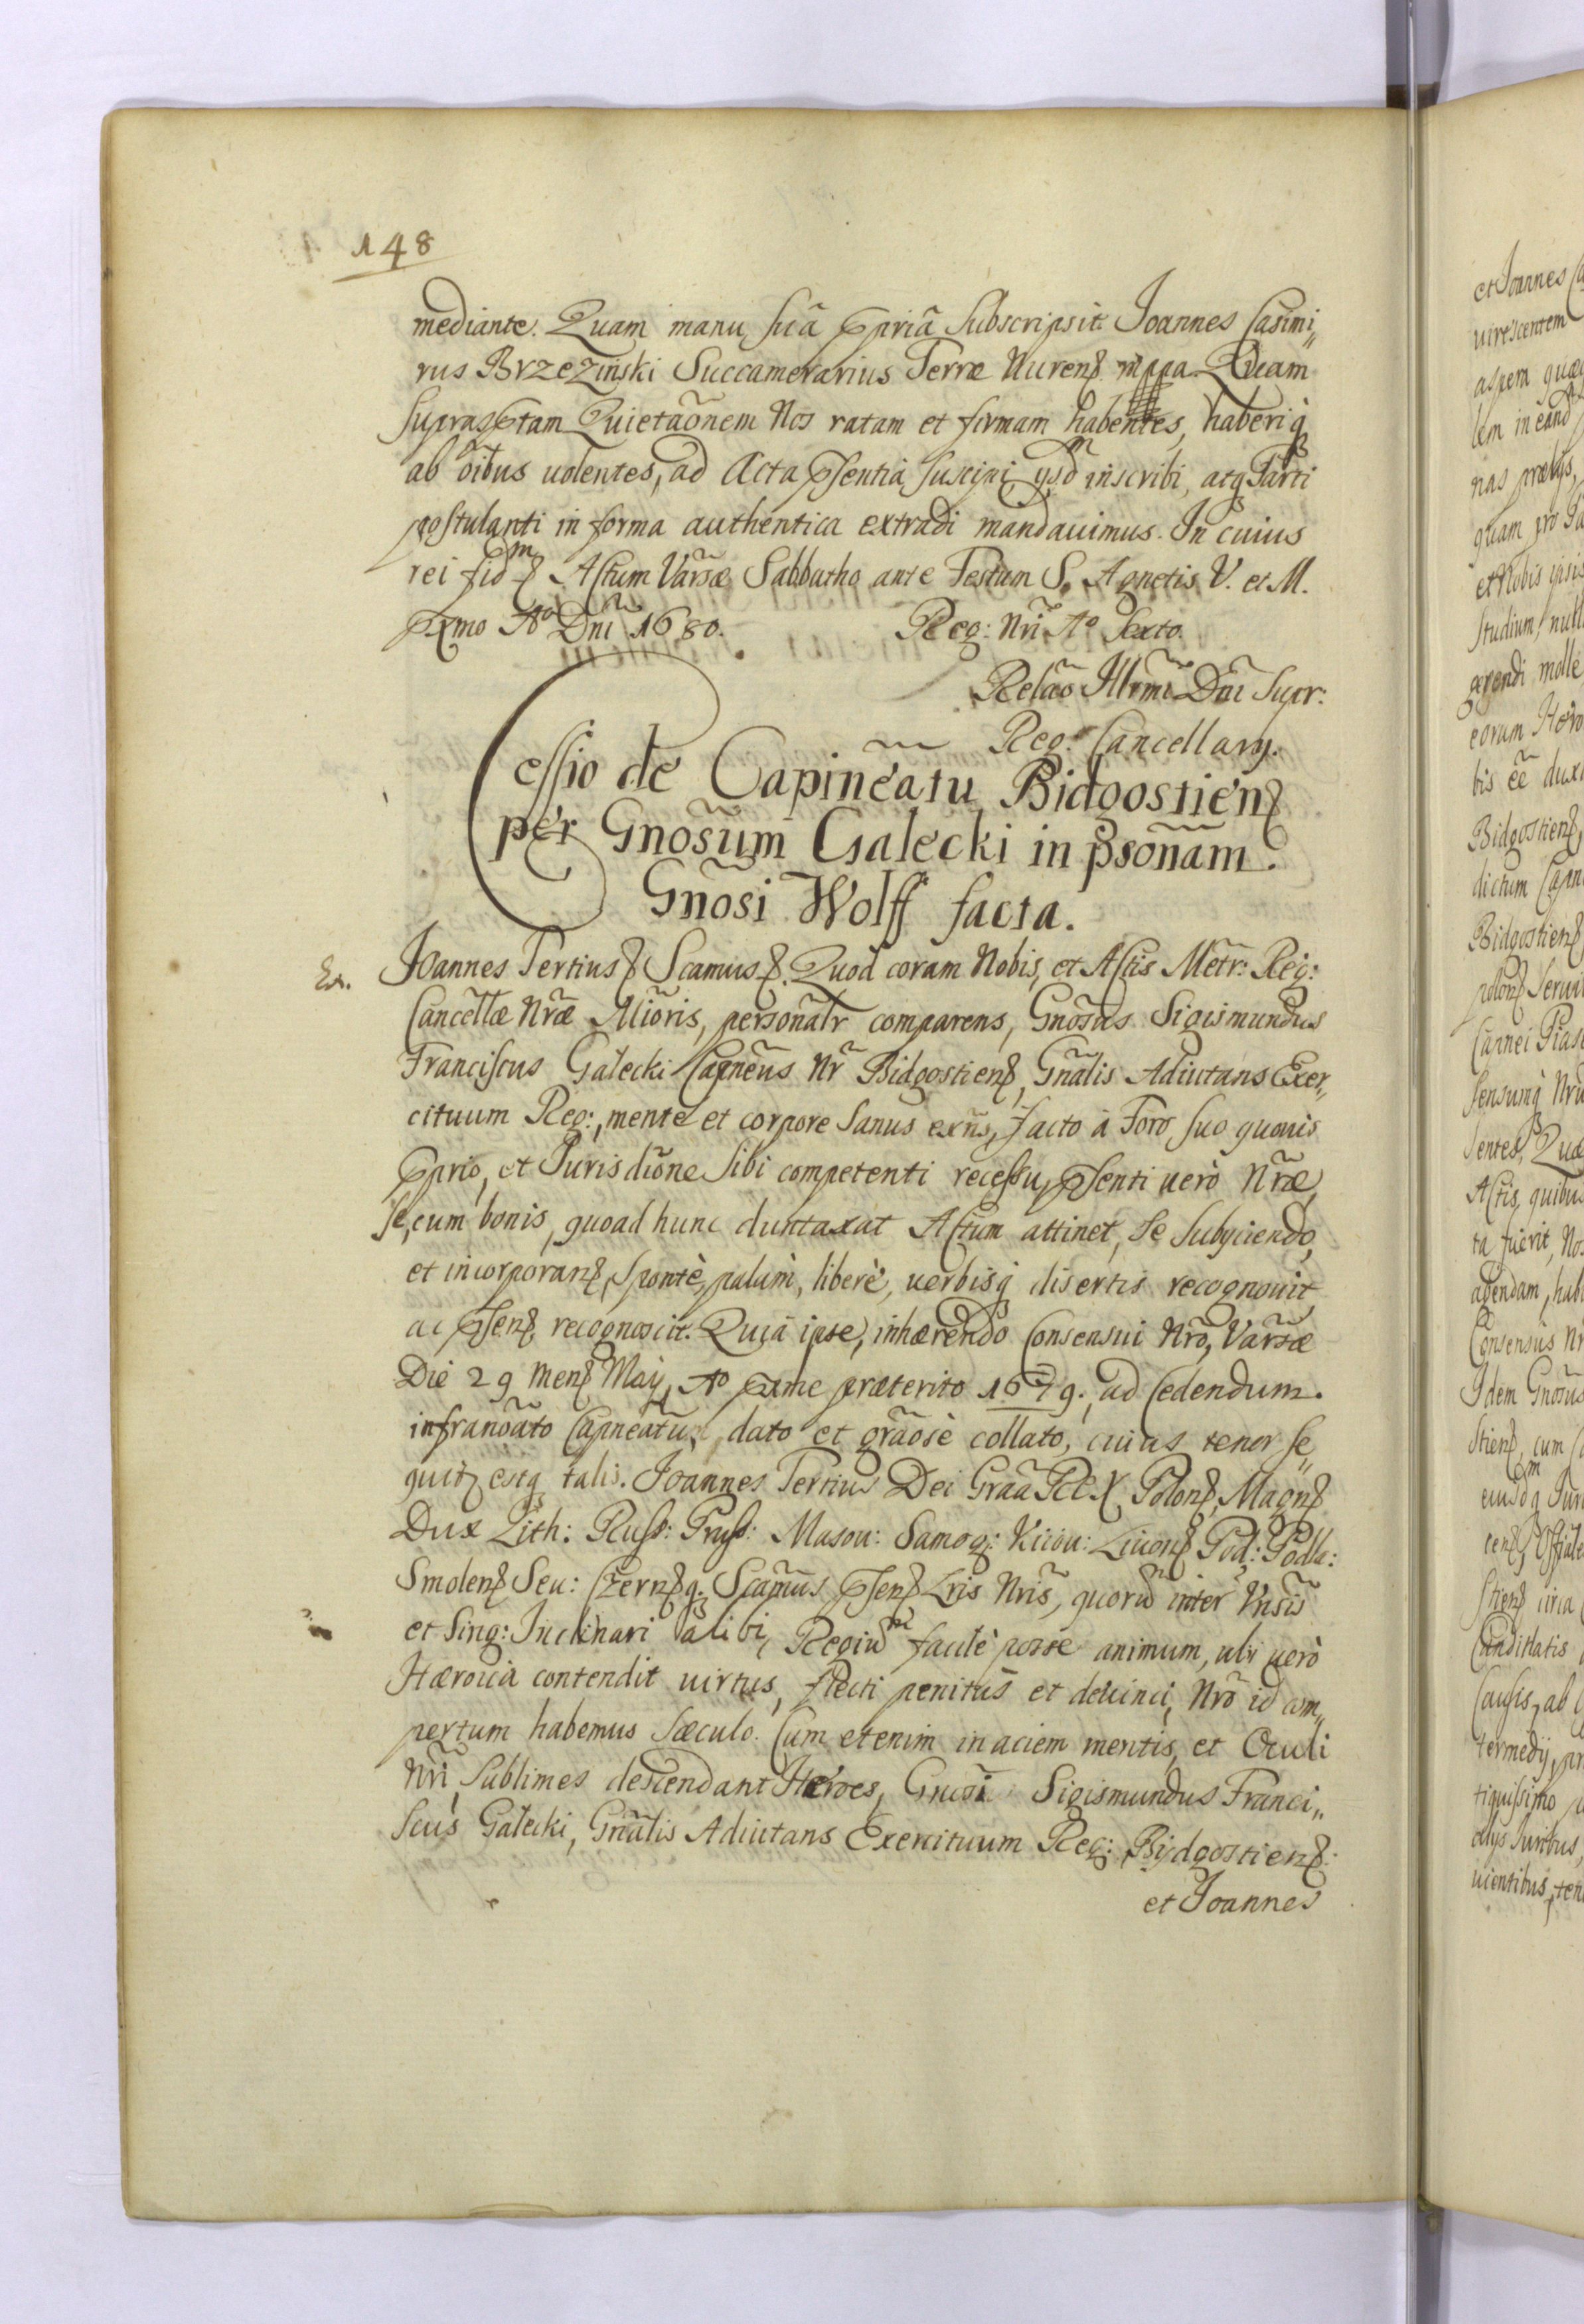 148
mediante. Quam manu suã ppriã Subscripsit Joannes Casimi„
rus Brzeziński Succamerarius Terræ Nurens. mppa. Quam
suprasptam Quietãonem Nos ratam et firmam habentes, haberiq
ab oĩbus uolentes, ad Acta psentia suscipi ysdm inscribi, atq Parti
postulanti in forma authentica extradi mandauimus. In cuius
rei fidm Actum Varsæ Sabbatho ante Festum S. Agnetis V. et M.
pxmo Ao Dni 1680. Reg: Nri Ao Sexto.
Relao Illrmi Dni Supr:
Reg: Cancellarij.
Cessio de Capineatu Bidgostiens
per Gnosum Galecki in psonam
Gnosi Wolff facta.
Ex. Joannes Tertius Scamus. Quod coram Nobis, et Actis Metr: Reg:
Cancellæ Nræ Mioris, personalr comparens, Gnosus Sigismundus
Franciscus Gałecki Capneus Nr Bidgostiens, Gnalis Adiutans Exer„
cituum Reg:, mente et corpore sanus exns, facto à Foro suo quouis
pprio, et Jurisdione sibi competenti recessu, psenti uerò Nræ,
se, cum bonis, quoad hunc duntaxat Actum attinet, se subyciendo,
et incorporans, spontè, palàm, liberè, uerbisq disertis recognouit
ac psens recognoscit. Quia ipse, inhærendo Consensui Nro, Varsæ
Die 29 Mens May, Ao pxme præterito 1679. ad Cedendum
infranoato Capneatu, dato et graosè collato, cuius tenor se„
quit estq talis. Joannes Tertius Dei Graa Rex Polons, Magns
Dux Lith: Russ: Pruss: Masou: Samog: Kiiou: Liuons Pod: Podla:
Smolens Seu: Czernsq. Scamus psens Lris Nris, quorum inter Vnsis
et Sing: Inclinari alibi, Regium facilè posse animum, ubi uerò
Hæroica contendit uirtus, flecti penitùs et deuinci, Nro id com„
pertum habemus sæculo. Cum etenim in aciem mentis, et Oculi
Nri, sublimes descendant Hæroes, Gnosi Sigismundus Franci„
scus Gałecki, Gnalis Adiutans Exercituum Reg: Bydgostiens:
et Joannes